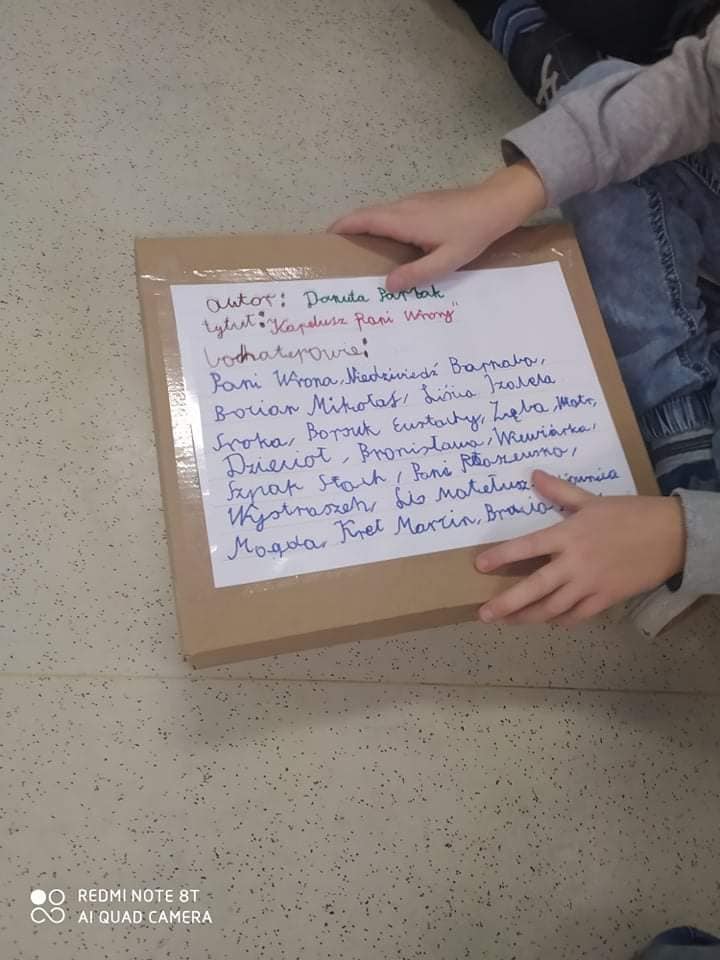 autor: Danuta Parlak
tytuł: "Kapelusz Pani Wrony"
bochaterowie:
Pani Wrona, Niedźwiedź Barnaba,
Bocian Mikołaj, Lisica Izabela
Sroka, Borsuk Eustachy, Zięba, Motr,
Dzięcioł, Bronisława, Wiewiórka,
Szpak Stach, Pani
Wystraszek, Lis Mateusz,
Magda, Kret Marcin, Bracia
REDMI NOTE 8T
AI QUAD CAMERA